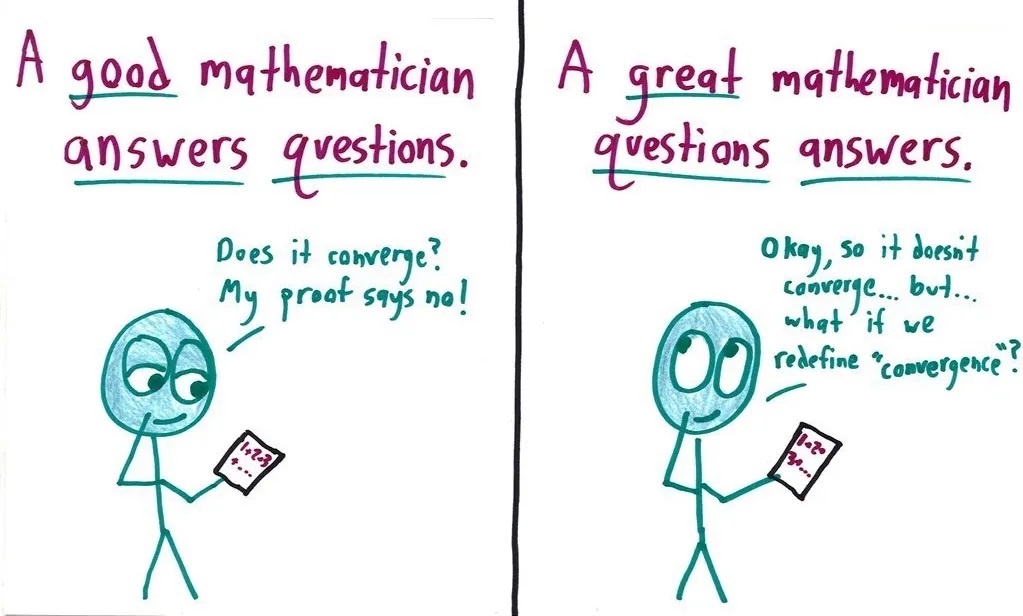 A good mathematician
answers questions.
Does it converge?
My proof says no!
1+2+3
+...
A great mathematician
questions answers.
Okay, so it doesn't
converge... but...
what if we
redefine "convergence"?
1+2+
3+...